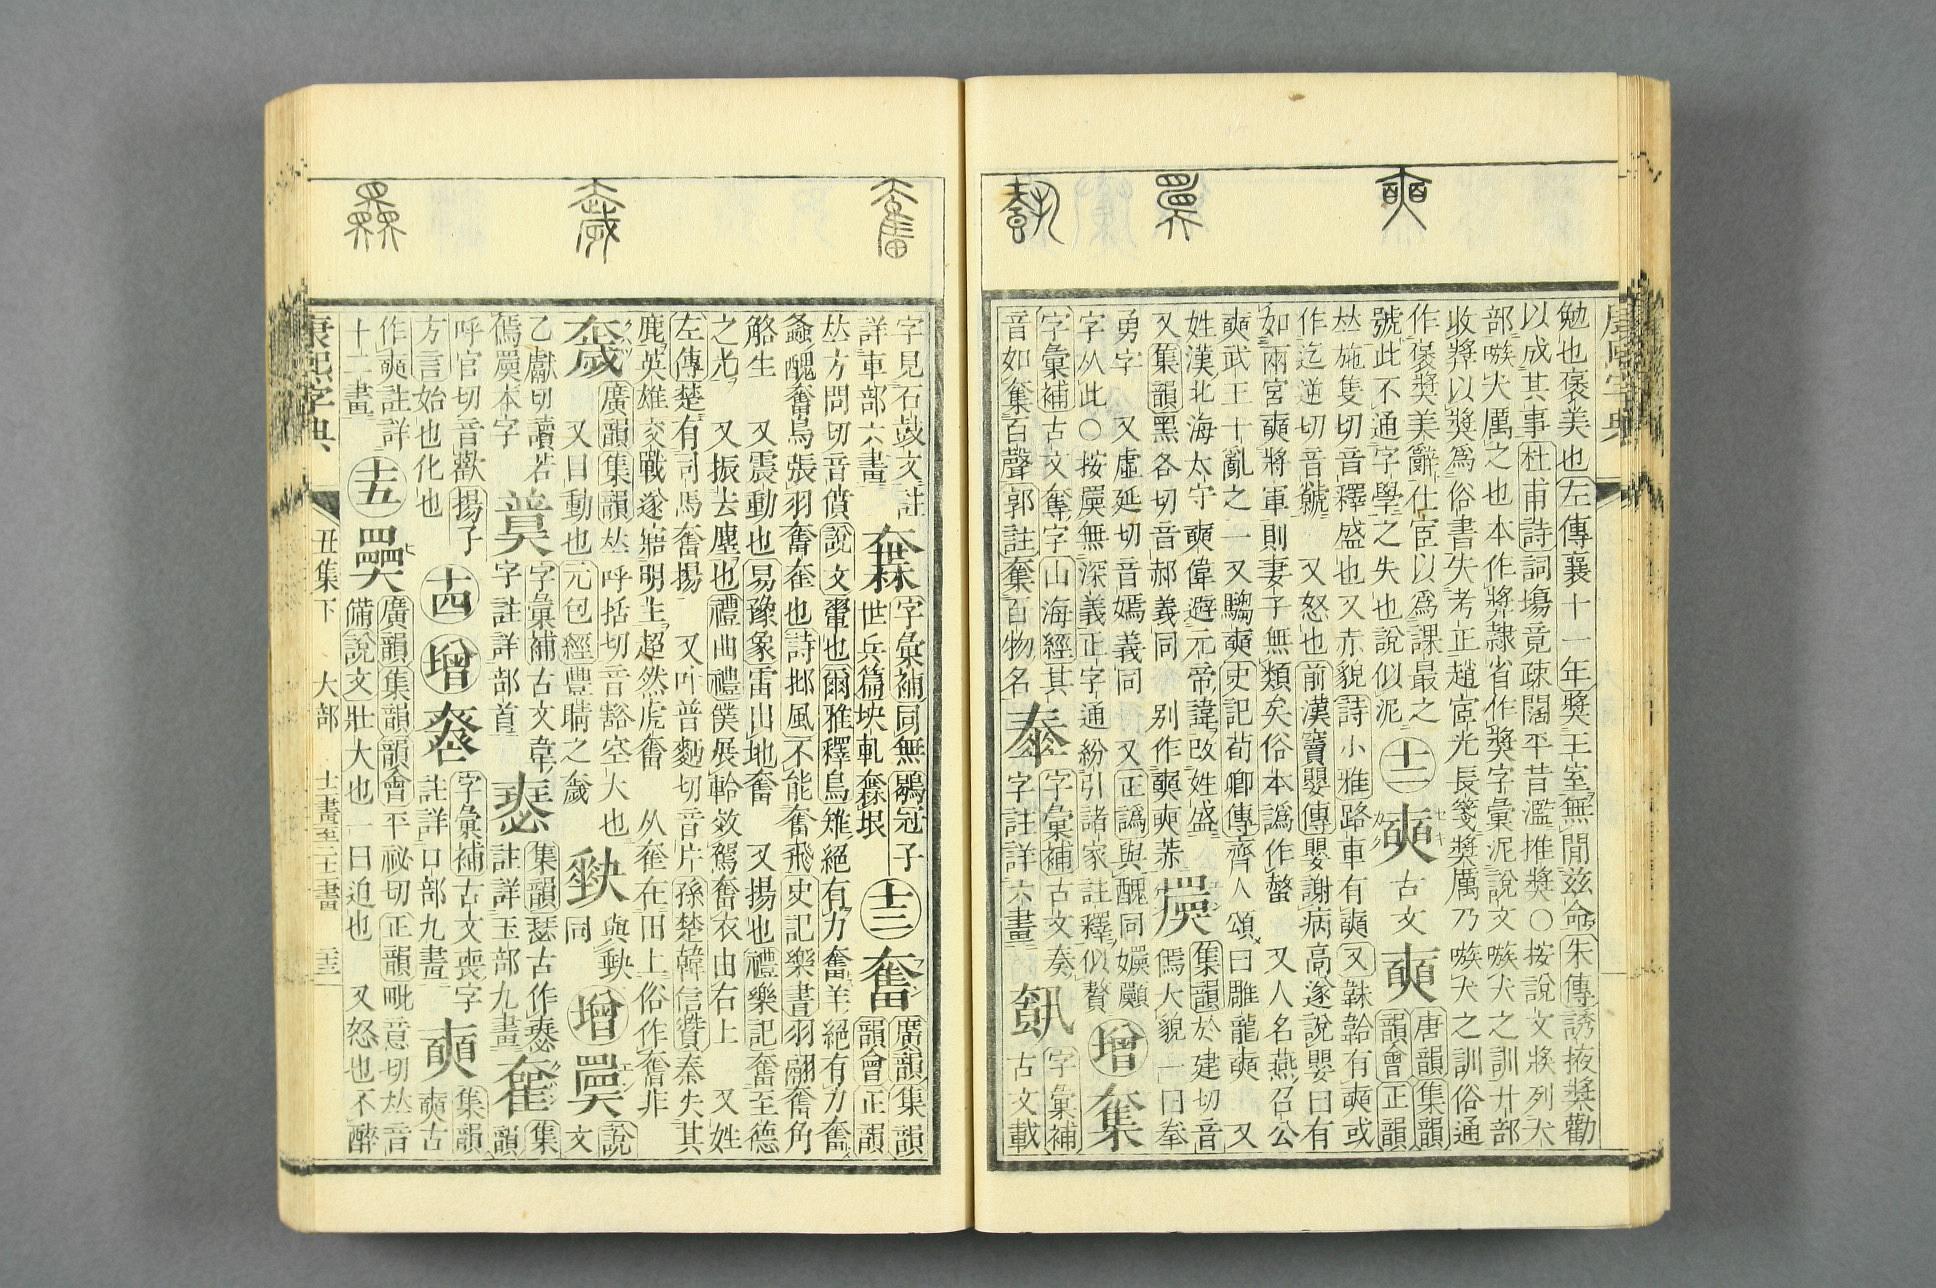 勉也褒美也左傳襄十一年奬王室無閒茲命朱傳誘掖奬勸
以成其事杜甫詩詞場竟疎闊平昔濫推奬○按說文㢡列犬
部嗾犬厲之也本作㢡隸省作奬字彙泥說文嗾犬之訓廾部
收奬以奬爲俗書失考正趙宧光長箋奬厲乃嗾犬之訓俗通
作褒奬美辭仕宦以爲課最之
號此不通字學之失也說似泥
十二
奭
古文
奭
唐韻集韻
韻會正韻
𠀤施隻切音釋盛也又赤貌詩小雅路車有奭又韎韐有奭或
作迄逆切音虩 又怒也前漢竇嬰傳嬰謝病高遂說嬰曰有
如兩宮奭將軍則妻子無類矣俗本譌作螫 又人名燕召公
奭武王十亂之一又騶奭史記荀卿傳齊人頌曰雕龍奭 又
姓漢北海太守奭偉避元帝諱改姓盛
又集韻黑各切音郝義同 別作
集韻於建切音
傿大貌一曰拳
勇字 又虛延切音嫣義同 又正譌與醜同
字从此○按 無深義正字通紛引諸家註釋似贅
增
奪
字彙補
字彙補古文奪字山海經其
音如奪百聲郭註奪百物名
字彙補古文奏
字註詳六畫
字彙補
古文載
字見石鼓文註
詳車部六畫
字彙補同無鶡冠子
世兵篇坱軋 垠
十三
奮
廣韻集韻
韻會正韻
𠀤方問切音僨說文翬也爾雅釋鳥雉絕有力奮羊絕有力奮
雞醜奮鳥張羽奮奞也詩邶風不能奮飛史記樂書羽翮奮角
觡生 又震動也易豫象雷出地奮 又揚也禮樂記奮至德
之光 又振去塵也禮曲禮僕展軨效駕奮衣由右上 又姓
左傳楚有司馬奮揚 又叶普麪切音片孫楚韓信贊秦失其
鹿英雄交戰遂寤明主超然虎奮 从奞在田上俗作奮非
奯
廣韻集韻𠀤呼括切音豁空大也
又目動也元包經豐睛之奯
同
增
說
文
乙獻切讀若
傿 本字
字彙補古文韋
字註詳部首
集韻瑟古作
註詳玉部九畫
奞
集
韻
呼官切音歡揚子
方言始也化也
十四
增
字彙補古文喪字
註詳口部九畫
集韻
奭古
作奭註詳
十二畫
十五
奰
廣韻集韻韻會平祕切正韻毗意切𠀤音
備說文壯大也一曰迫也 又怒也不醉
康熙字典
丑集下 大部